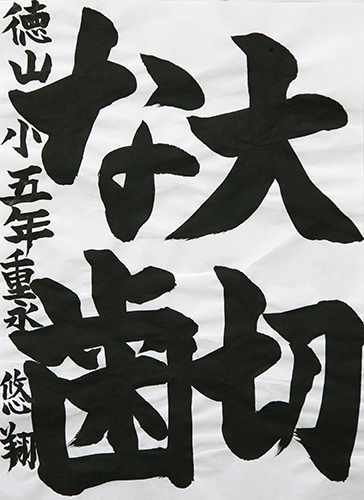 大切
な歯
徳山小五年重永悠翔